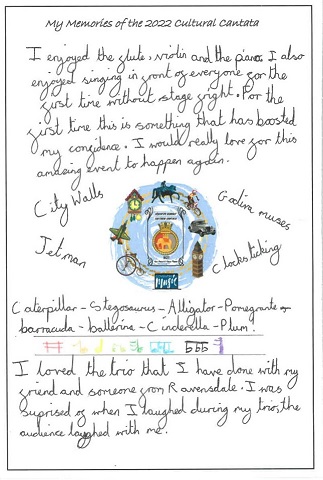 My Memories of the 2022 Cultural Cantata
I enjoyed the glute, violin and the piano. I also
enjoyed singing in gront of everyone gor the
girst time without stage gright. For the
girst time this is something that has boosted
my congidence. I would really love gor this
amazing event to happen again.
City Walls
Godiva muses
Jetman
Clocksticking
MUSIC
Caterpillar - Stegosaurus - Alligator - Pomegrante -
barracuda - ballerina - Cinderella - Plum!
I loved the trio that I have done with my
griend and someone grom Ravensdale. I was
suprised og when I laughed during my trio, the
audience laughed with me.